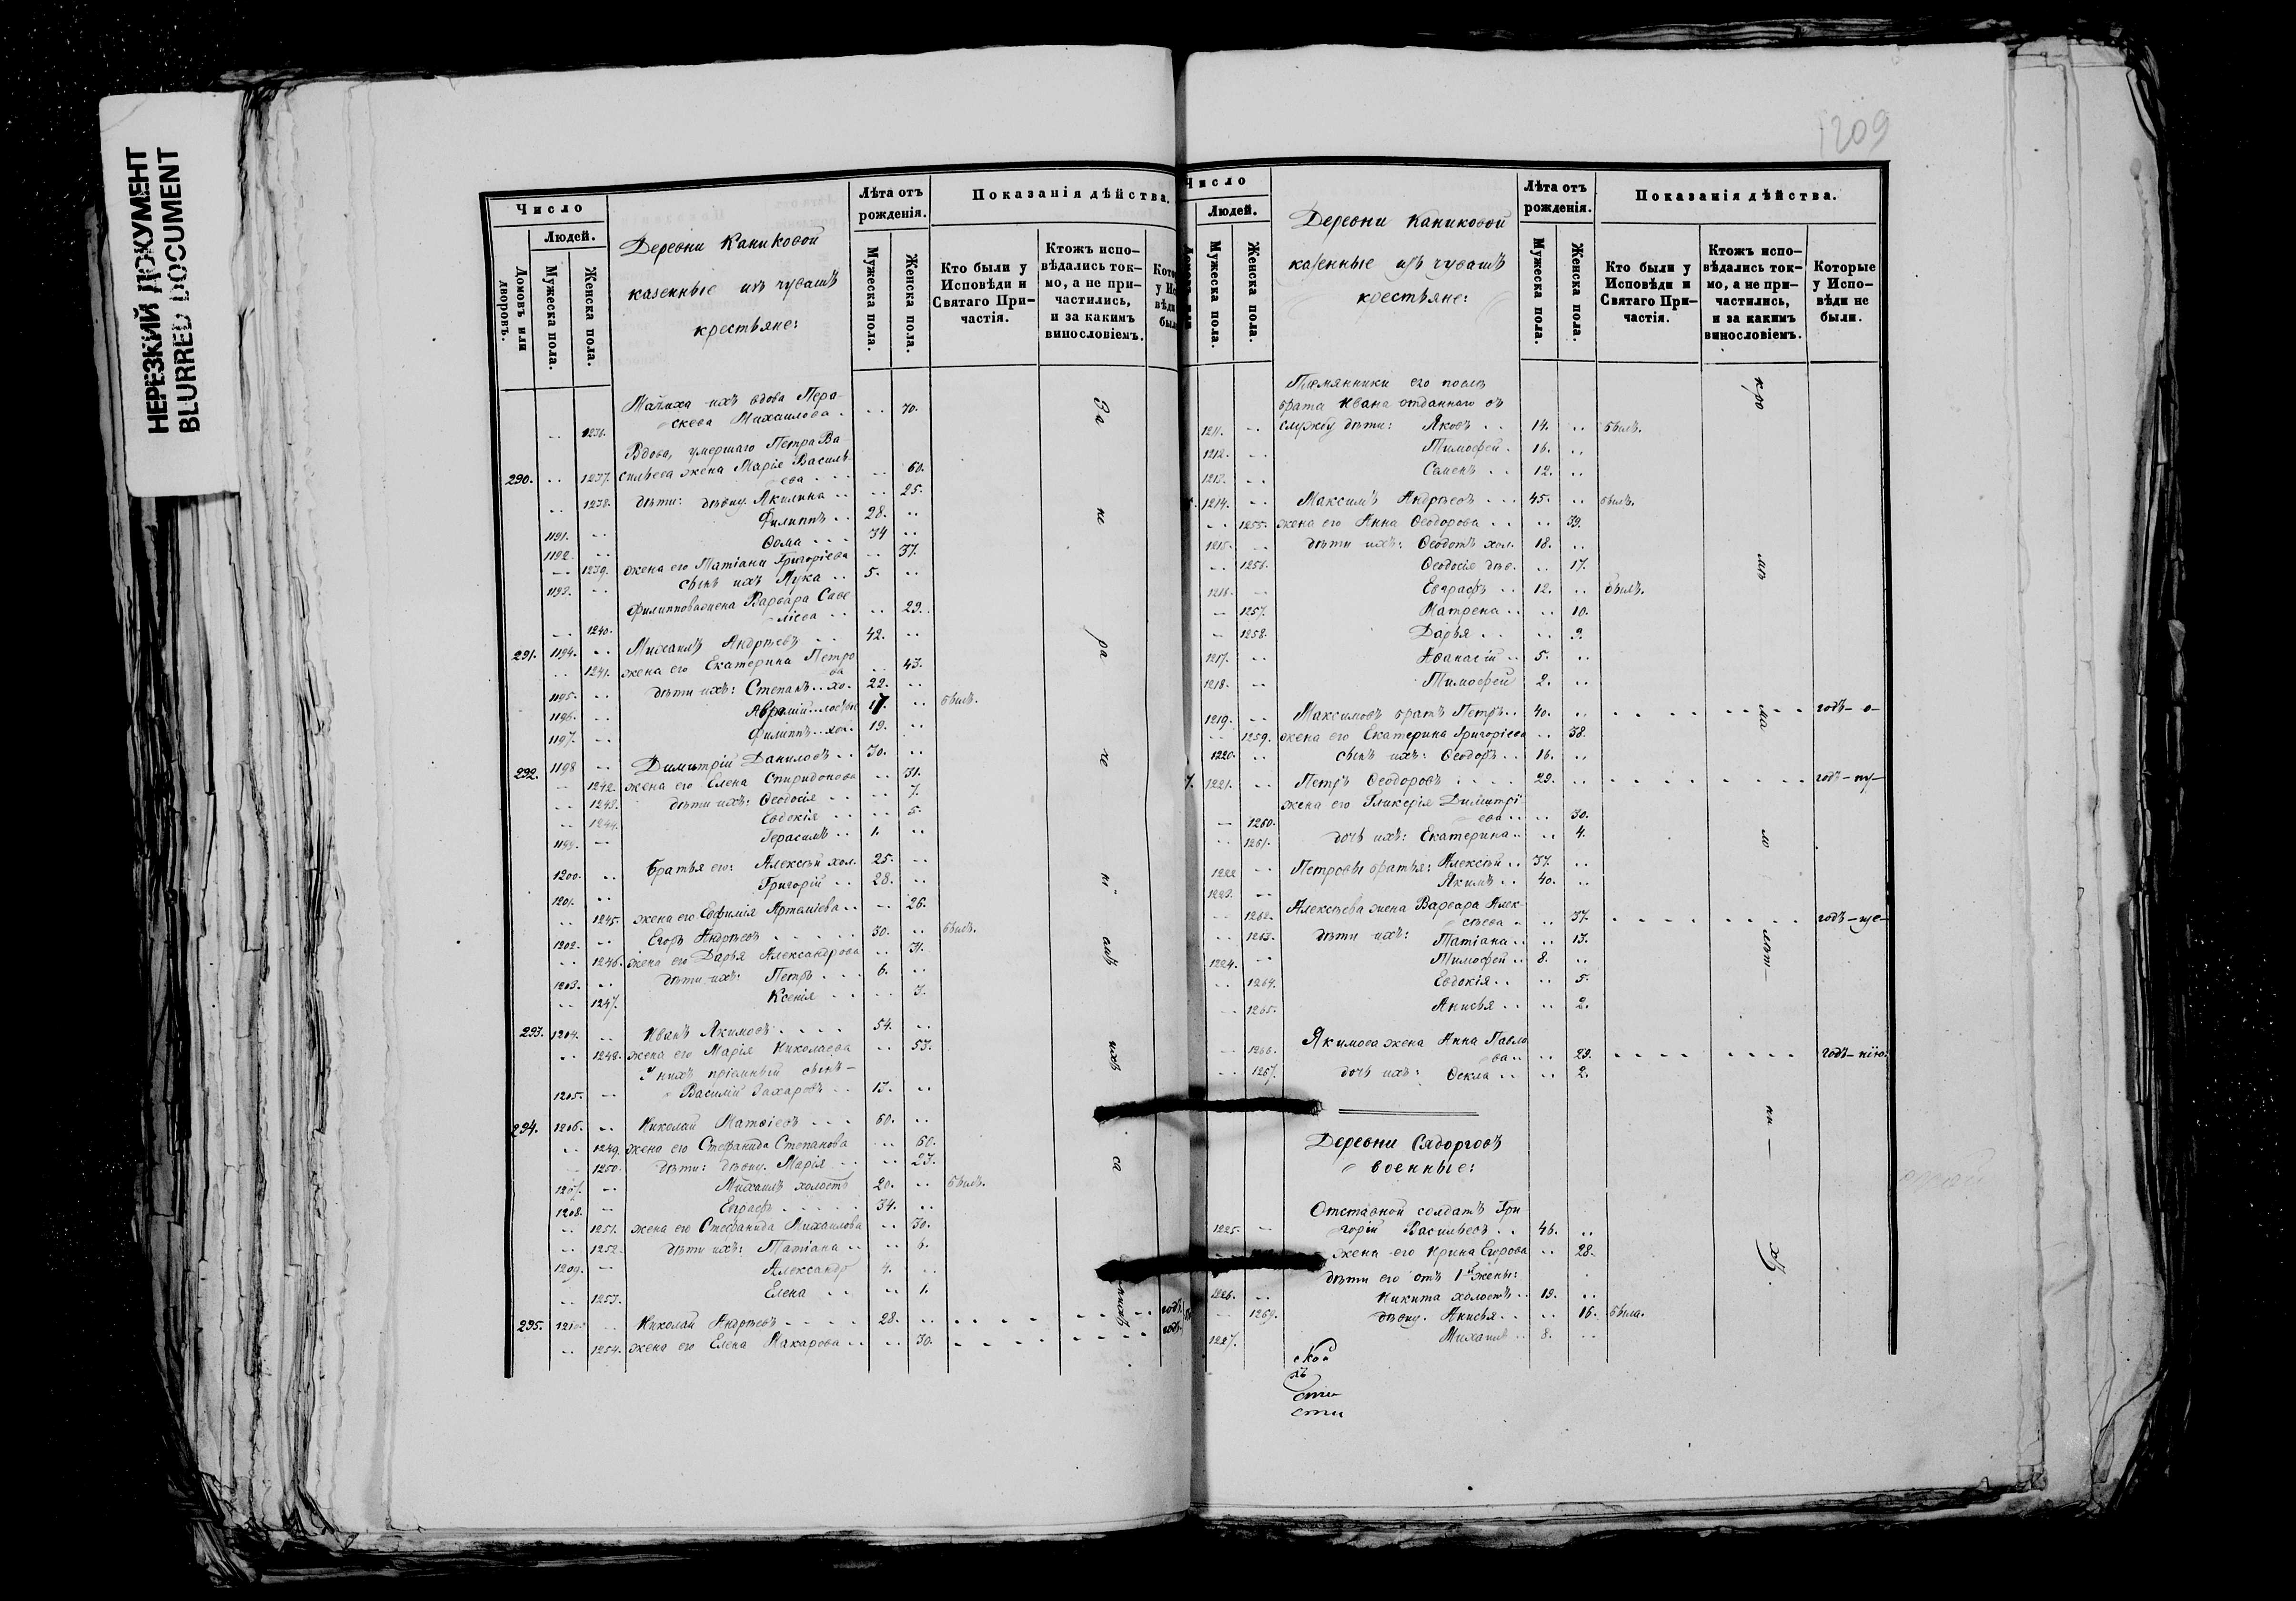 НЕРЕЗКИЙ ДОКУМЕНТ
BLURRED DOCUMENT
Число
Людей.
Домовъ или дворовъ.
Мужеска пола.
Женска пола.
Деревни Каниковой
казенные изъ чувашъ
крестьяне:
Лѣта отъ рожденія.
Мужеска пола.
Женска пола.
Показанія дѣйства.
Кто были у Исповѣди и Святаго Причастія.
Ктожъ исповѣдались токмо, а не причастились, и за какимъ винословіемъ.
Мачиха ихъ вдова Пера-
1236. скева Михаилова . .. 70.
Вдова, умершаго Петра Ва
290. .. 1237. сильева жена Марія Василь-
ева . . . .. 60.
.. 1238. дѣти: дѣвиц. Акилина .. .. 25.
1191. .. Филиппъ .. 28. ..
1192. .. Ѳома . . . 34 ..
.. 1239. жена его Татіана Григоріева .. 37.
1193. .. сынъ ихъ Лука .. 5. ..
Филиппова жена Варвара Саве
.. 1240. ліева .. .. 29.
291. 1194. .. Михаилъ Андреевъ . . 42. ..
.. 1241. жена его Екатерина Петро
ва .. 43.
1195. .. дѣти ихъ: Степанъ .. хо. 22. ..
1196. .. 17. .. былъ.
1197. .. Филиппъ .. хол. 19. ..
292. 1198 .. Димитрій Даниловъ .. 30. ..
.. 1242. жена его Елена Спиридонова .. 31.
.. 1243. дѣти ихъ: Ѳеодосія . . .. 7.
.. 1244. Евдокія . . .. 5.
1199. .. Герасимъ .. 1. ..
1200. .. Братья его: Алексѣй хол. 25. ..
1201. .. Григорій .. 28. ..
.. 1245. жена его Евфимія Артеміева .. .. 26.
1202. .. Егоръ Андреевъ . . . . 30. .. былъ.
.. 1246. жена его Дарья Александрова .. 31.
1203. .. дѣти ихъ: Петръ . . . 6. ..
.. 1247. Ксенія . . .. 3.
293. 1204. .. Иванъ Якимовъ . . . . 54. ..
.. 1248. жена его Марія Николаева .. 53.
У нихъ пріемный сынъ -
1205. .. Василій Захаровъ .. 13. ..
294. 1206. .. Николай Матвіевъ . . . 60. ..
.. 1249. жена его Стефанида Степанова .. 60.
1250. дѣти: дѣвиц. Марія . . .. 23.
1207. .. Михаилъ холостъ 20. .. былъ.
1208. .. Евграфъ . . . . . 34. ..
.. 1251. жена его Стефанида Михаилова .. 30.
.. 1252. дѣти ихъ: Татіана .. .. 6.
1209. .. Александръ 4. ..
.. 1253. Елена . . .. 1.
295. 1210. .. Николай Андреевъ . . . . . 28. .. годъ.
.. 1254. жена его Елена Макарова .. .. 30. годъ.
За
не
ра
че
ні
амъ
ихъ
са
209
Число
Людей.
Мужеска пола.
Женска пола.
Деревни Каниковой
казенные изъ чувашъ
крестьяне:
Лѣта отъ рожденія.
Мужеска пола.
Женска пола.
Показанія дѣйства.
Кто были у Исповѣди и Святаго Причастія.
Ктожъ исповѣдались токмо, а не причастились, и за какимъ винословіемъ.
Которые у Исповѣди не были.
Племянники его послѣ
брата Ивана отданнаго въ
1211. .. службу дѣти: Яковъ . . 14. .. былъ.
1212. .. Тимофей . 16. ..
1213. .. Семенъ . . 12. ..
1214. .. Максимъ Андреевъ . . . 45. .. былъ.
.. 1255. жена его Анна Ѳеодорова . . .. 39.
1215. .. дѣти ихъ: Ѳеодотъ хол. 18. ..
.. 1256. Ѳеодосія дѣв. .. 17.
1216. .. Евграфъ .. 12. .. былъ.
.. 1257. Матрена .. .. 10.
.. 1258. Дарья . . .. 9.
1217. .. Аѳанасій .. 5. ..
1218. .. Тимофей 2. ..
1219. .. Максимовъ братъ Петръ .. 40. .. годъ - о -
.. 1259. жена его Екатерина Григоріева .. 38.
1220. .. сынъ ихъ: Ѳеодоръ .. 16. ..
1221. .. Петръ Ѳеодоровъ . . . . 29. .. годъ - пу -
жена его Гликерія Димитрі
.. 1260. ева .. .. 30.
.. 1261. дочь ихъ: Екатерина .. .. 4.
1222 .. Петровы братья: Алексѣй .. 37. ..
1223. .. Якимъ .. 40. ..
Алексѣева жена Варвара Алек-
.. 1262. сѣева .. .. 37. годъ - ще -
.. 1263. дѣти ихъ: Татіана .. .. 13.
1224. .. Тимофей .. 8. ..
.. 1264. Евдокія . . .. 5.
.. 1265. Анисья . . .. 2.
Якимова жена Анна Павло
.. 1266. ва .. .. 29. годъ - нію.
.. 1267. дочь ихъ: Ѳекла .. .. 2.
Деревни Сядорговъ
военные:
Отставной солдатъ Гри
1225. .. горій Васильевъ .. 46. ..
жена его Ирина Егорова .. 28.
дѣти его отъ 1й жены:
1226. .. Никита холостъ .. 19. ..
.. 1269. дѣвиц. Анисья . . .. 16. была.
1227. Михаилъ .. 8. ..
кро
мѣ
ма
ло
лѣт -
ни -
хъ.
ской